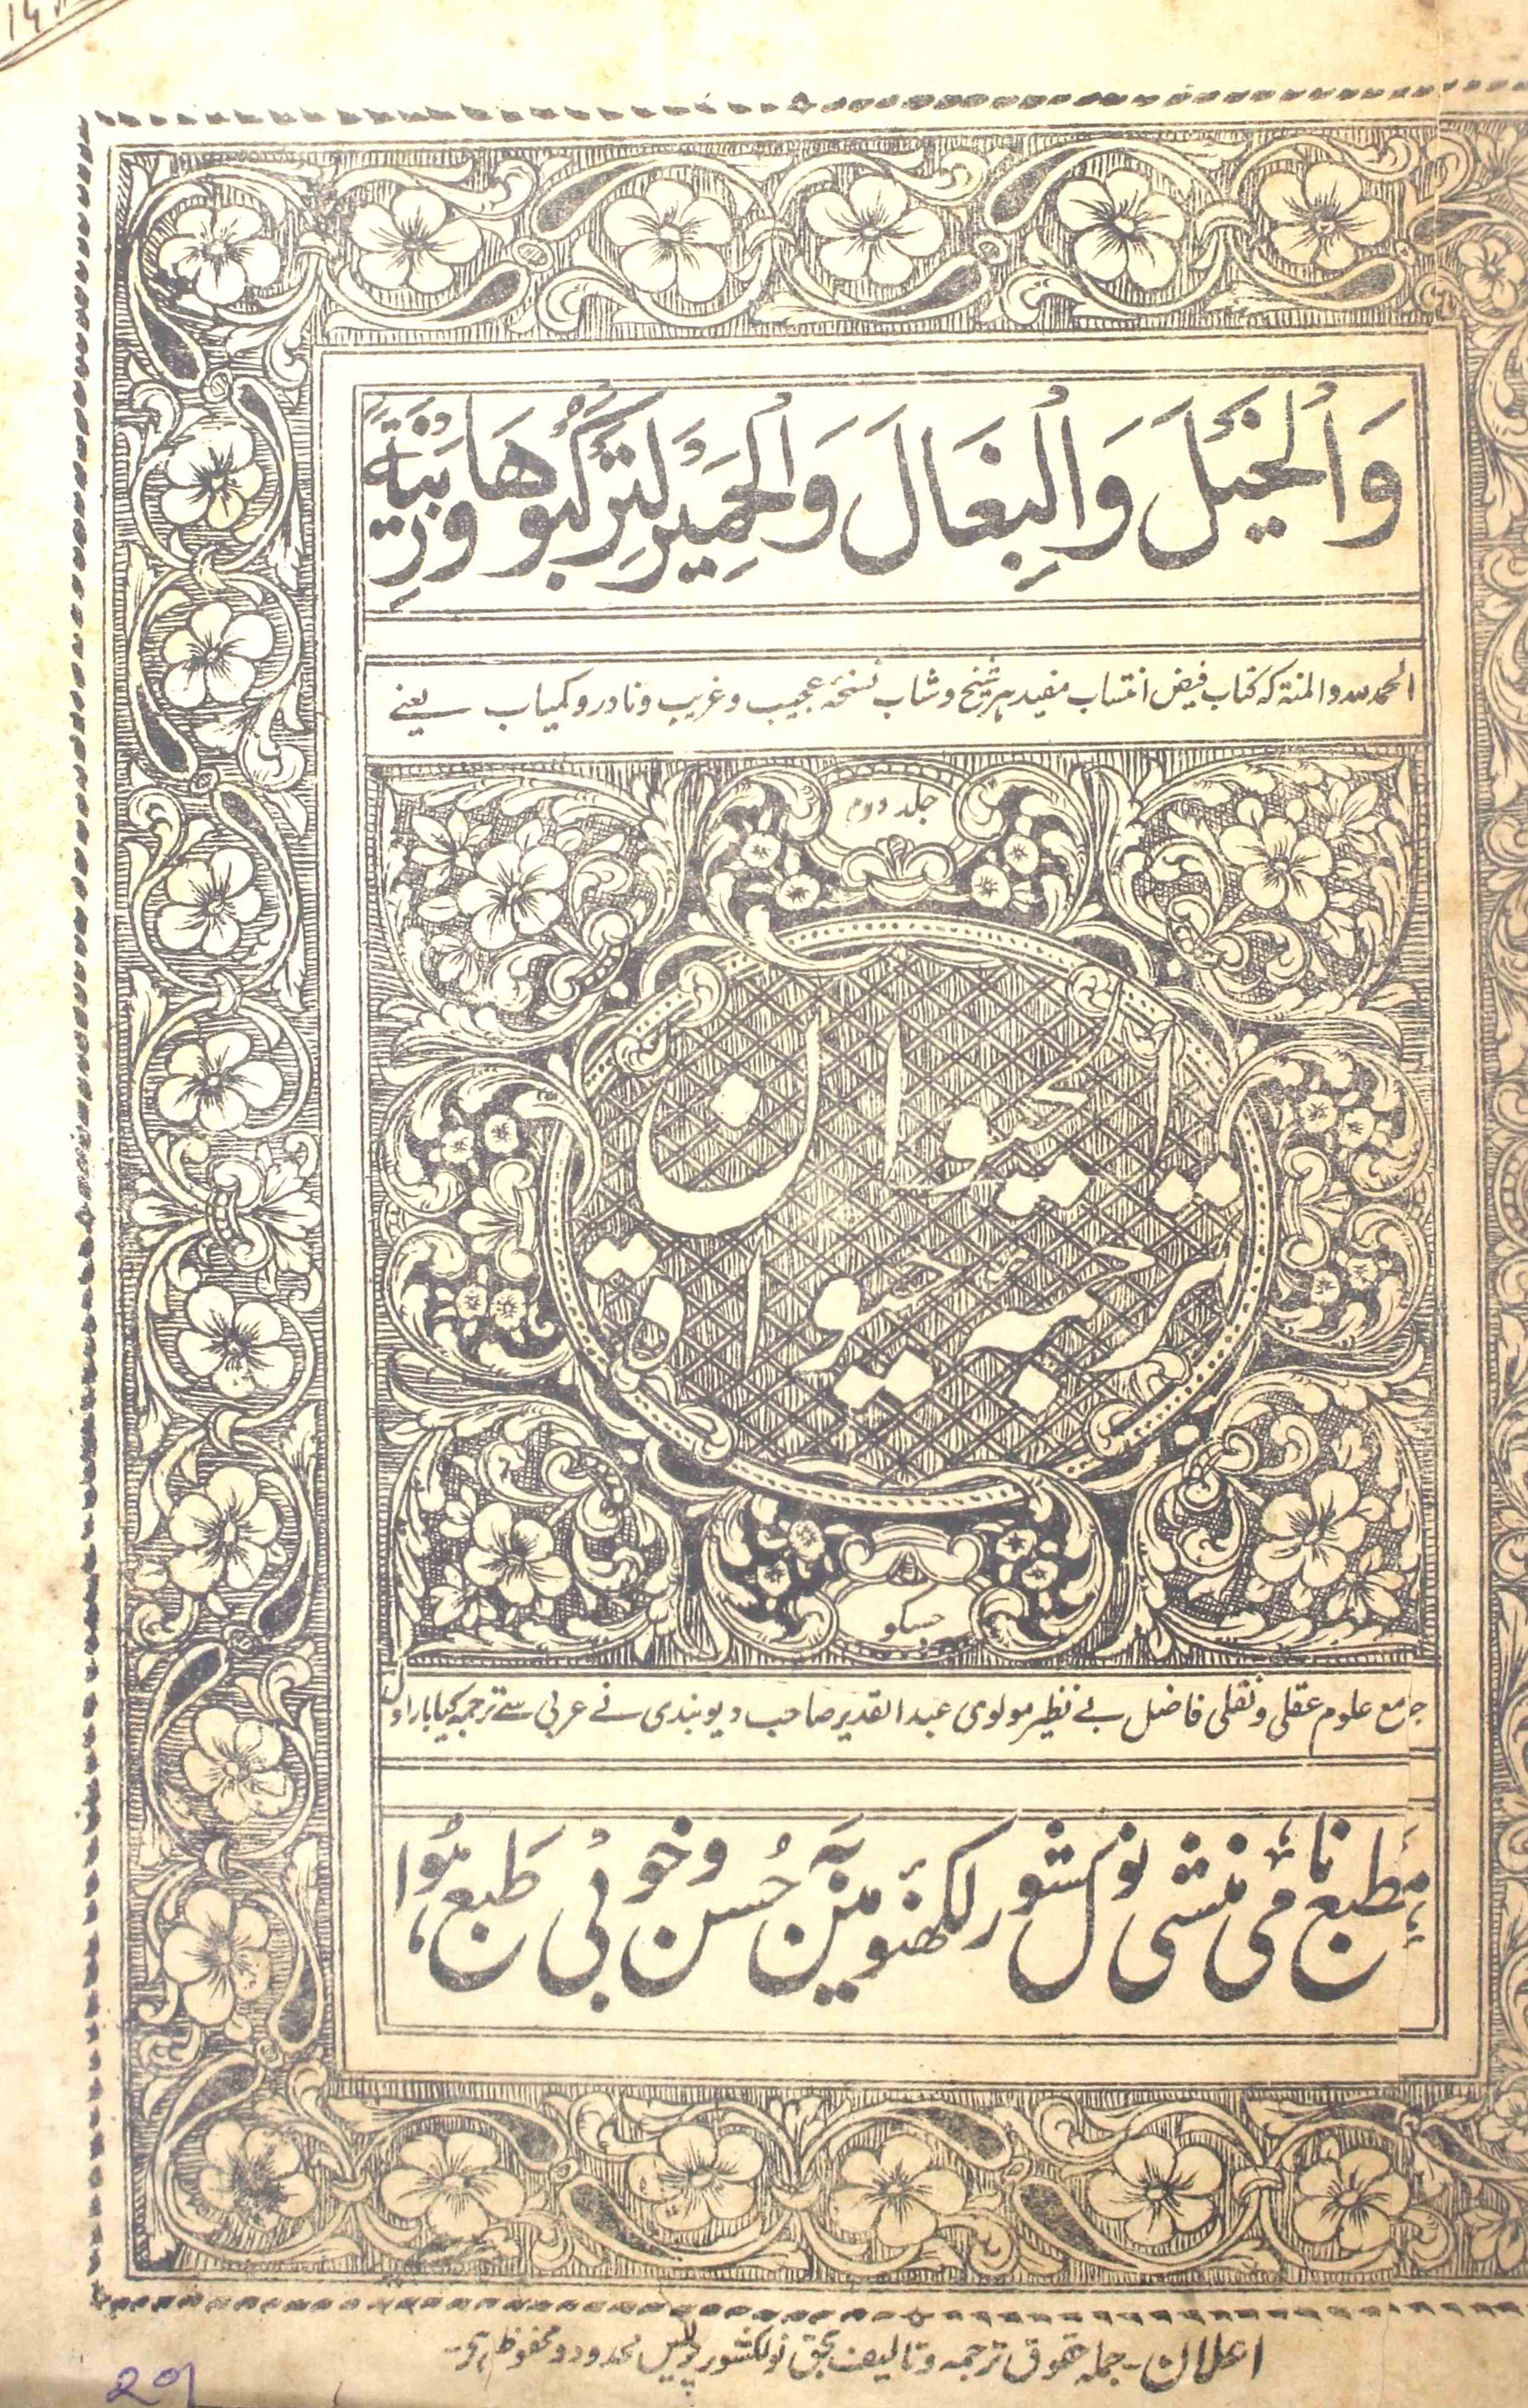 وَالْخَيْلَ وَالْبِغَالَ وَالْحَمِيْرَ لِتَرْكَبُوْهَا وَزِيْنَةً
الحمد للہ والمنۃ کہ کتاب فیض انتساب مفید ہر شیخ و شاب نسخہ عجیب و غریب و نادر و کمیاب یعنے
جلد دوم
حیٰوۃ الحیوان
ترجمہ
جسکو
جامع علوم عقلی و نقلی فاضل بے نظیر مولوی عبد القدیر صاحب دیوبندی نے عربی سے ترجمہ کیا بار اول
مطبع نامی منشی نولکشور لکھنؤ مین بہ حُسن و خوبی طبع ہُوا
اعلان۔ جملہ حقوق ترجمہ و تالیف بحق نولکشور پریس محدود و محفوظ ہے۔
20